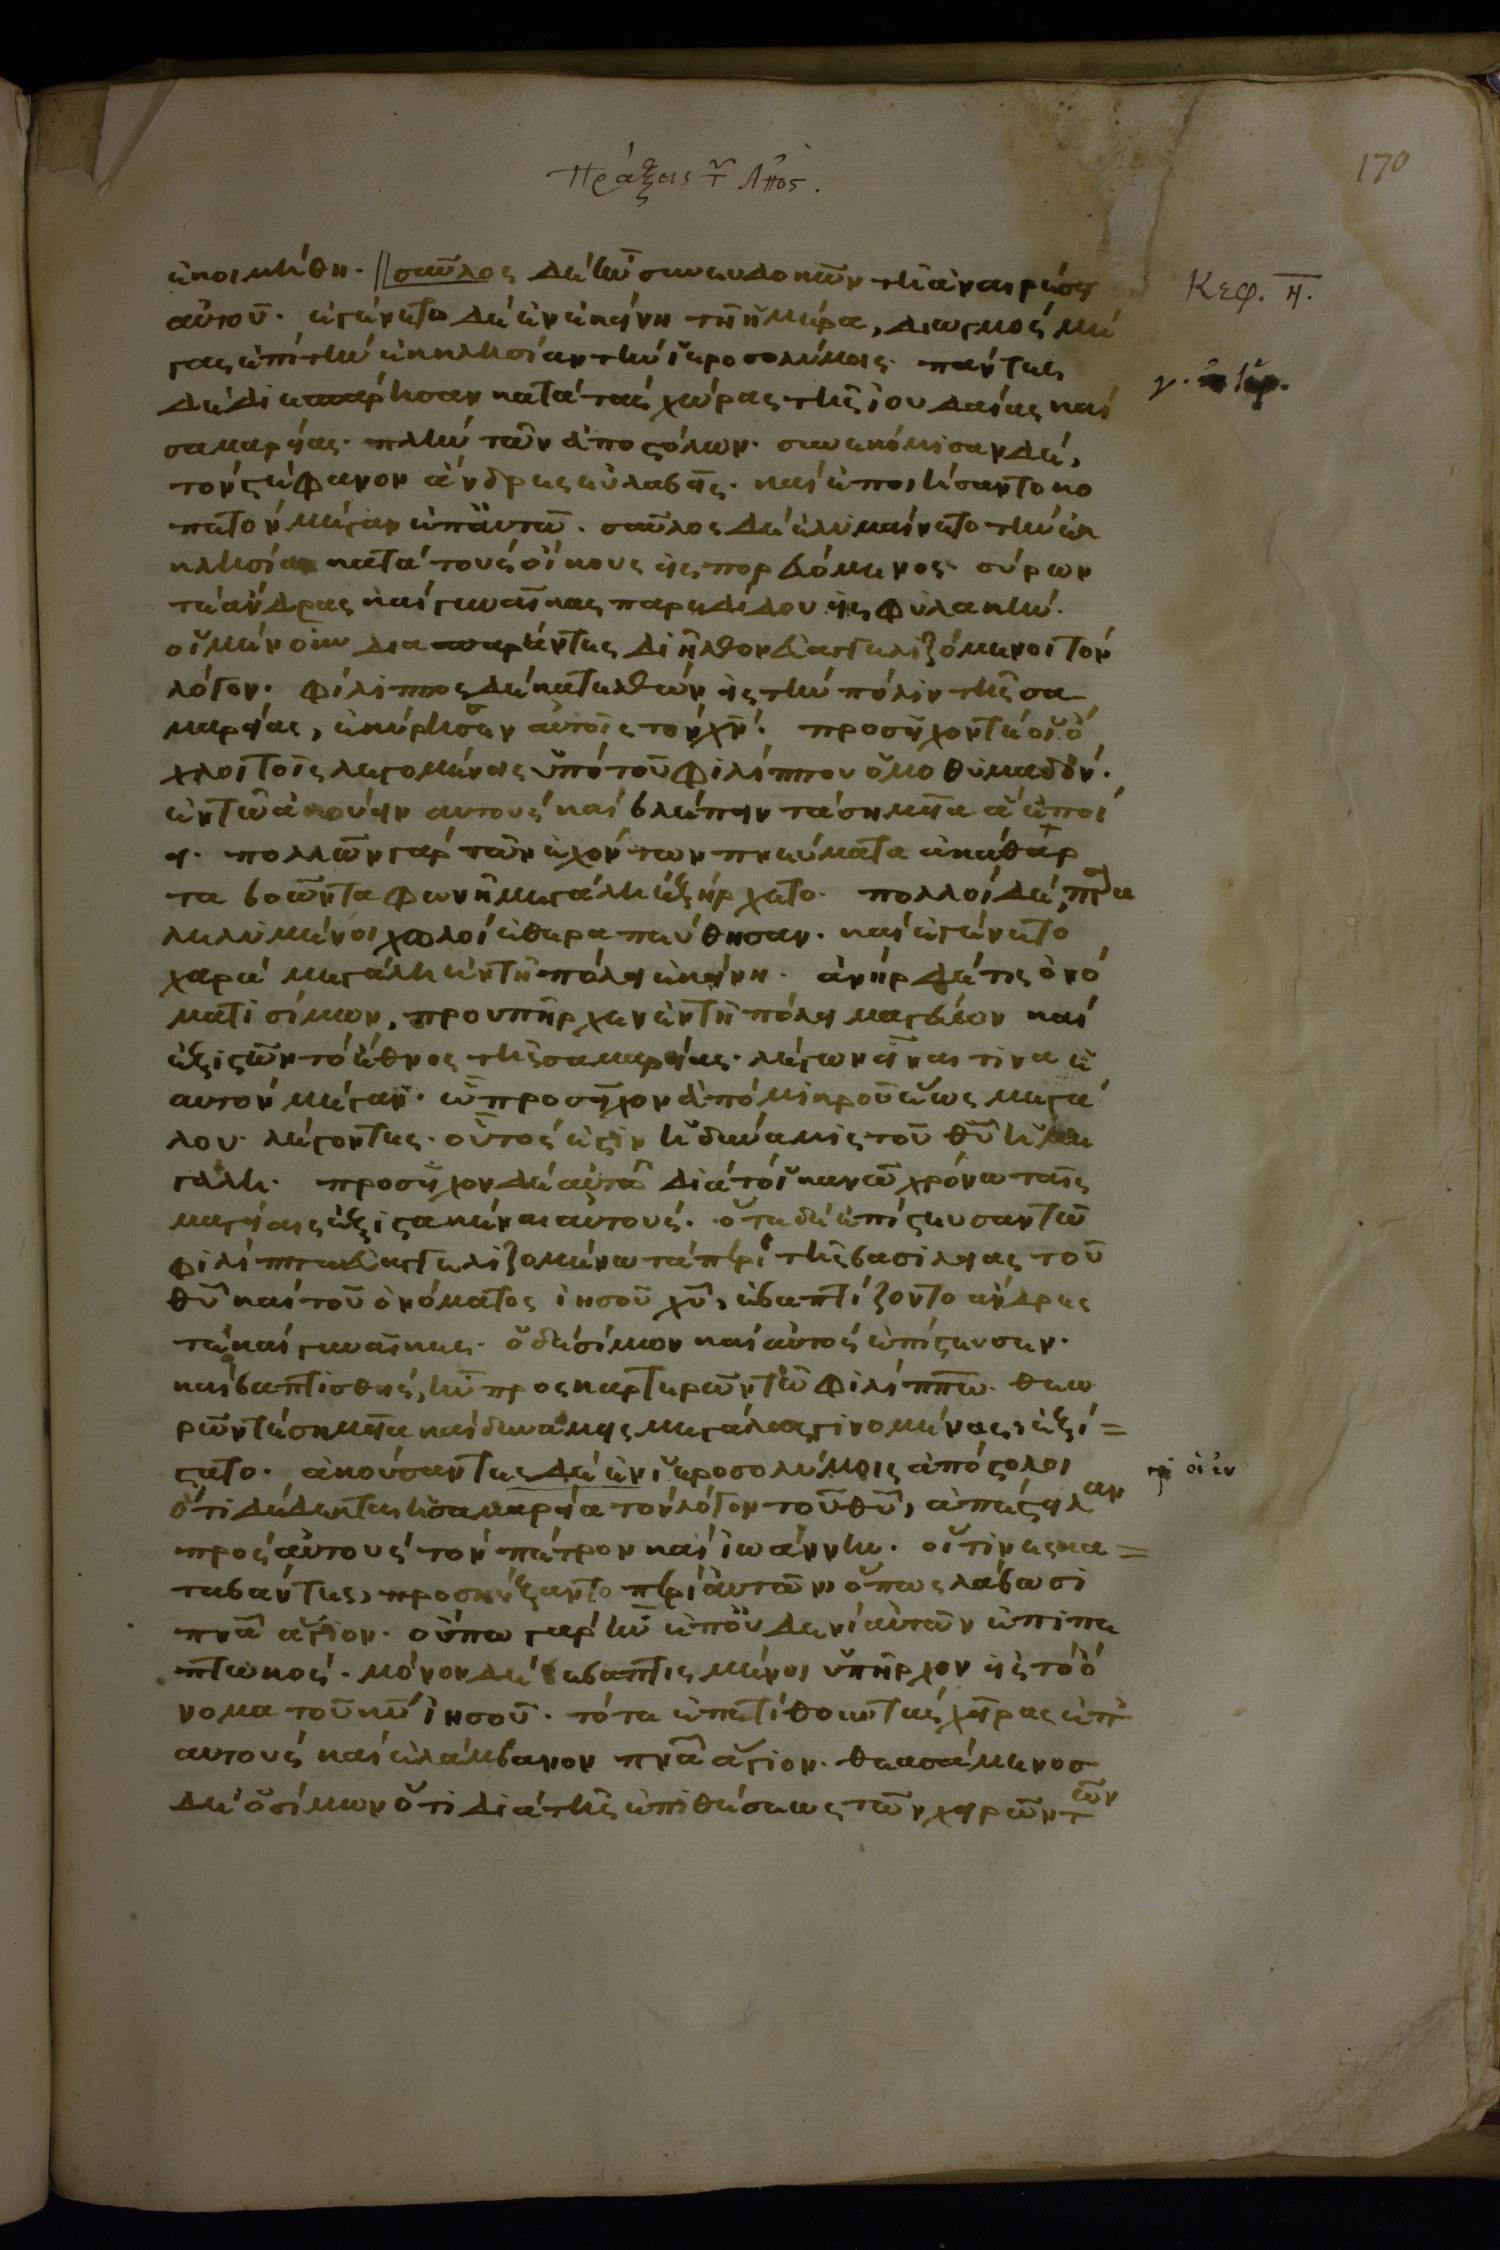 Πράξεις τ῀ Ἀπος.
170
ἐκοιμήθη. σαῦλος δὲ ἦν συνευδοκῶν τῆ ἀναιρέσει
Κεφ. η.
αὐτοῦ. ἐγένετο δὲ ἐν ἐκείνη τῆ ἡμέρα, διωγμὸς μέ
γας ἐπὶ τὴν ἐκκλησίαν τὴν ἱεροσολύμοις. πάντες
δὲ διεσπάρησαν κατὰ τὰς χώρας τῆς ἰουδαίας καὶ
σαμαρείας. πλὴν τῶν ἀποστόλων. συνεκόμισαν δὲ,
τὸν στέφανον ἄνδρες εὐλαβεῖς. καὶ ἐποιήσαντο κο
πετὸν μέγαν ἐπ' αὐτῶ. σαῦλος δὲ ἐλυμαίνετο τὴν ἐκ
κλησίαν κατὰ τοὺς οἴκους εἰσπορευόμενος. σύρων
τὲ ἄνδρας καὶ γυναῖκας παρεδίδου εἰς φυλακήν.
οἱ μὲν οὖν διασπαρέντες διῆλθον εὐαγγελιζόμενοι τὸν
λόγον. φίλιππος δὲ κατελθὼν εἰς τὴν πόλιν τῆς σα
μαρείας, ἐκήρυσσεν αὐτοῖς τὸν χν. προσεῖχον τὲ οἱ ὄ
χλοι τοῖς λεγομένοις ὑπὸ τοῦ φιλίππου ὁμοθυμαδόν.
ἐν τῶ ἀκούειν αυτοὺς καὶ βλέπειν τὰ σημεῖα ἃ ἐποί
ει. πολλῶν γὰρ τῶν ἐχόντων πνεύματα ἀκάθαρ
τα βοῶντα φωνῆ μεγάλη ἐξήρχετο. πολλοὶ δὲ παρα
λελυμένοι χωλοὶ ἐθεραπεύθησαν. καὶ ἐγένετο
χαρὰ μεγάλη ἐν τῆ πόλει ἐκείνη. ἀνὴρ δέ τις ὀνό
ματι σίμων, προυπῆρχεν ἐν τῆ πόλει μαγεύων καὶ
ἐξιστῶν τὸ ἔθνος τῆς σαμαρείας. λέγων εἶναι τινα ἑ
αυτὸν μέγαν. ὧ προσεῖχον ἀπὸ μικροῦ ἕως μεγά
λου λέγοντες. οὗτος ἐστὶν ἡ δύναμις τοῦ θυ ἡ με
γάλη. προσεῖχον δὲ αὐτῶ διὰ τὸ ἱκανῶ χρόνω ταῖς
μαγείαις ἐξιστακέναι αὐτούς. ὅτε δὲ ἐπίστευσαν τῶ
φιλίππω εὐαγγελιζομένω τὰ περὶ τῆς βασιλείας τοῦ
θυ καὶ τοῦ ὀνόματος ἰησοῦ χυ, ἐβαπτίζοντο ἄνδρες
τὲ καὶ γυναῖκες. ὁ δὲ σίμων καὶ αὐτὸς ἐπίστευσεν.
καὶ βαπτισθεὶς, ἦν προσκαρτερῶν τῶ φιλίππω. θεω
ρῶν τὲ σημεῖα καὶ δυνάμεις μεγάλας γινομένας, ἐξί=
στατο. ἀκούσαντες δὲ ἐν ἱεροσολύμοις ἀπόστολοι
οἱ ἐν
ὅτι δέδεκται ἡ σαμαρεία τὸν λόγον τοῦ θυ, ἀπέστειλαν
πρὸς αὐτοὺς τὸν πέτρον καὶ ἰωάννην. οἵτινες κα=
ταβάντες, προσηύξαντο περὶ αὐτῶν, ὅπως λάβωσι
πνα ἅγιον. οὔπω γὰρ ἦν ἐπ' οὐδενὶ αὐτῶν ἐπιπε
πτωκός. μόνον δὲ βεβαπτισμένοι ὑπῆρχον εἰς τὸ ὄ
νομα τοῦ κυ ἰησοῦ. τότε ἐπετίθουν τὰς χεῖρας ἐπ'
αυτοὺς καὶ ἐλάμβανον πνα ἅγιον. θεασάμενος
δὲ ὁ σίμων ὅτι διὰ τῆς ἐπιθέσεως τῶν χειρῶν τῶν